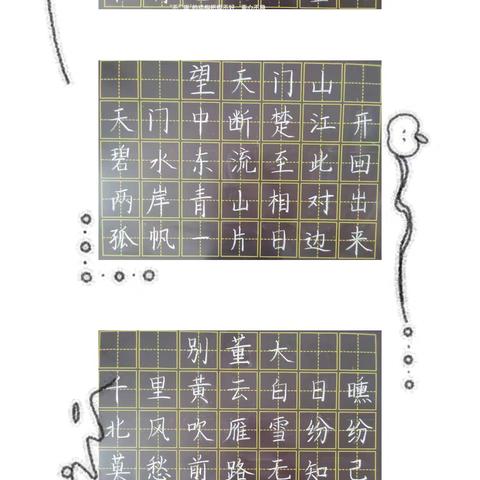 望天门山
天门中断楚江开
碧水东流至此回
两岸青山相对出
孤帆一片日边来
别董大
千里黄云白日曛
北风吹雁雪纷纷
莫愁前路无知己